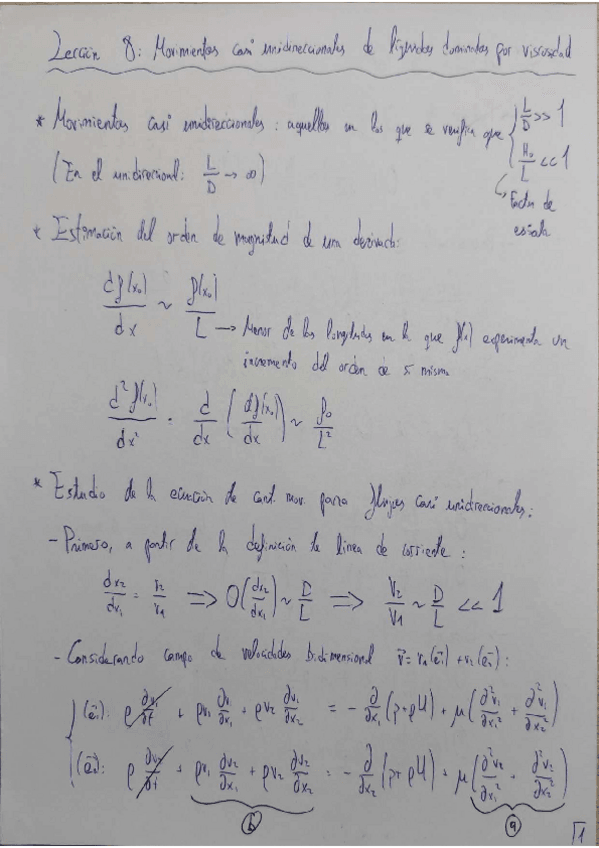 Lección 8: Movimientos casi unidireccionales de líquidos dominados por viscosidad
* Movimientos casi unidireccionales: aquellos en los que se verifica que { L/D >> 1
H₀/L << 1
(En el unidireccional: L/D → ∞)
↳ Factor de
escala
* Estimación del orden de magnitud de una derivada:
df(x₀)/dx ~ f(x₀)/L → Menor de las longitudes en la que f(x) experimenta un
incremento del orden de sí misma
d²f(x₀)/dx² = d/dx (df(x₀)/dx) ~ f₀/L²
* Estudio de la ecuación de cant. mov. para flujos casi unidireccionales:
- Primero, a partir de la definición de línea de corriente:
dx₂/dx₁ = v₂/v₁ ⟹ O(dx₂/dx₁) ~ D/L ⟹ V₂/V₁ ~ D/L << 1
- Considerando campo de velocidades bidimensional v⃗ = v₁(e⃗₁) + v₂(e⃗₂):
(e⃗₁): ρ ∂v₁/∂t + ρv₁ ∂v₁/∂x₁ + ρv₂ ∂v₁/∂x₂ = - ∂/∂x₁ (p+ρU) + μ(∂²v₁/∂x₁² + ∂²v₁/∂x₂²)
(e⃗₂): ρ ∂v₂/∂t + ρv₁ ∂v₂/∂x₁ + ρv₂ ∂v₂/∂x₂ = - ∂/∂x₂ (p+ρU) + μ(∂²v₂/∂x₁² + ∂²v₂/∂x₂²)
ⓑ ⓐ
1